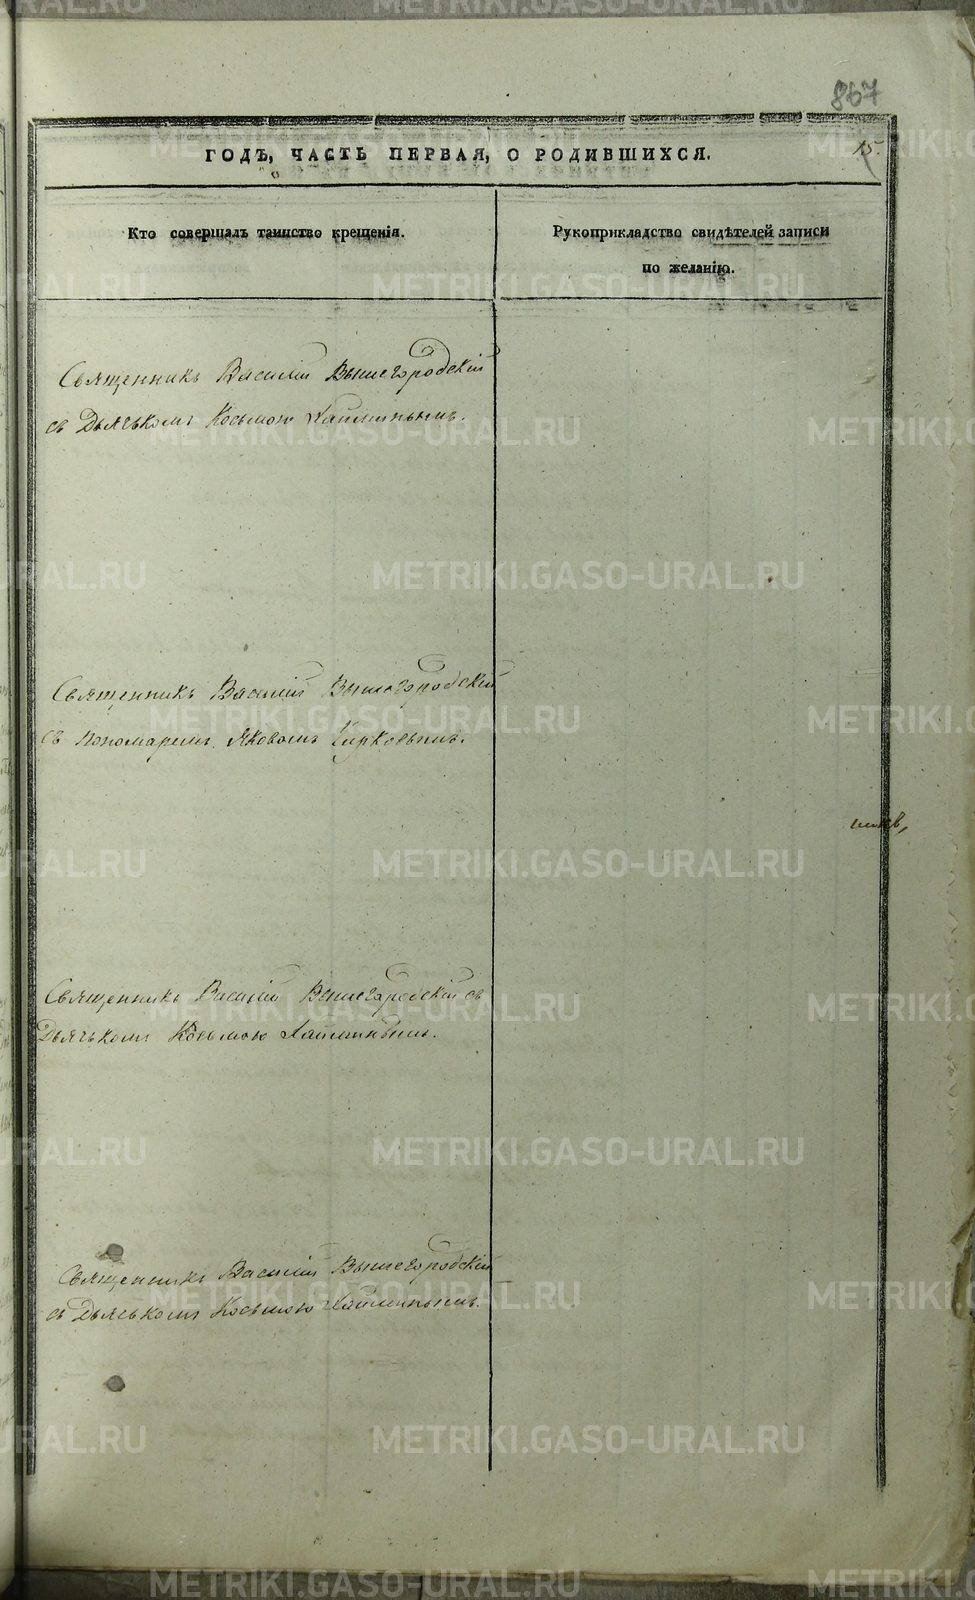 867
ГОДЪ, ЧАСТЬ ПЕРВАЯ, О РОДИВШИХСЯ.
15.
Кто совершалъ таинство крещенія.
Рукоприкладство свидѣтелей записи
по желанію.
Священникъ Василій Вышегородскій
съ Дьячькомъ Косьмою
Священникъ Василій Вышегородскій
съ пономаремъ Яковомъ
Священникъ Василій Вышегородскій съ
Дьячькомъ Косьмою
Священникъ Василій Вышегородскій
съ Дьячькомъ Косьмою
METRIKI.GASO-URAL.RU